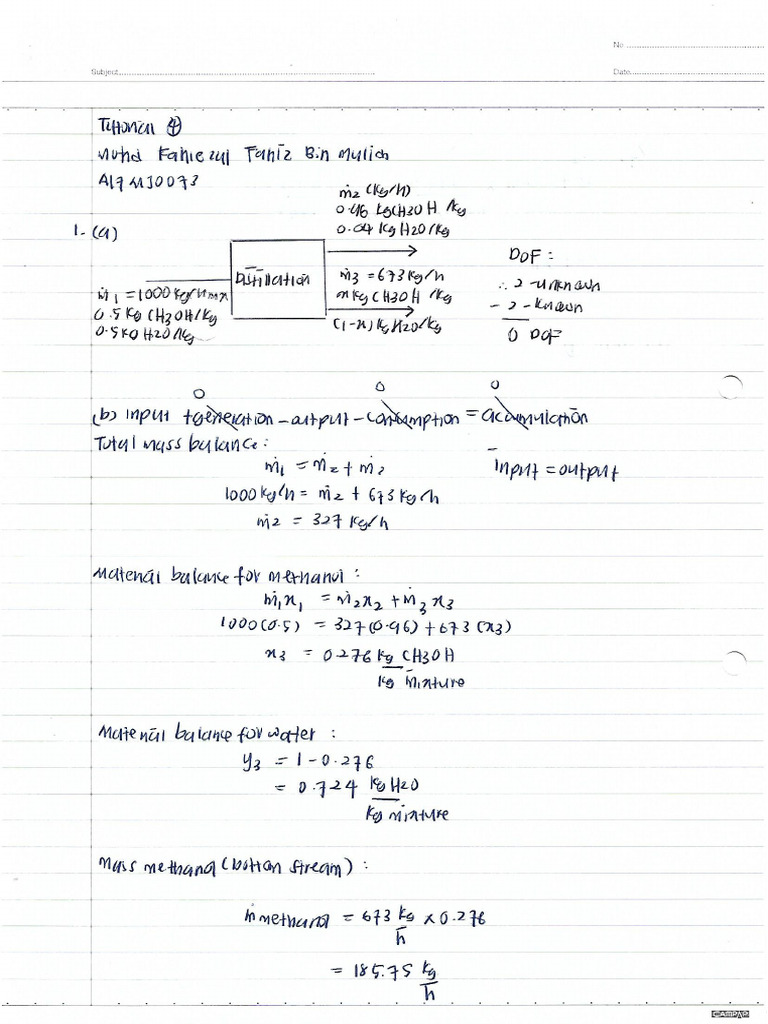 No
Subject
Date
Tutorial 4
Muhd Fahiezul Faniz Bin Mulich
A17MJ0073
1. (a)
ṁ2 (kg/h)
0.96 kg CH3OH /kg
0.04 kg H2O/kg
Distillation
ṁ1 = 1000 kg/h
0.5 kg CH3OH/kg
0.5 kg H2O/kg
ṁ3 = 673 kg/h
x kg CH3OH /kg
(1-x) kg H2O/kg
DOF :
∴ 2 - unknown
- 2 - known
0 DOF
0 0 0
(b) input + generation - output - consumption = accumulation
Total mass balance :
ṁ1 = ṁ2 + ṁ3
input = output
1000 kg/h = ṁ2 + 673 kg/h
ṁ2 = 327 kg/h
Material balance for methanol :
ṁ1x1 = ṁ2x2 + ṁ3x3
1000(0.5) = 327(0.96) + 673 (x3)
x3 = 0.276 kg CH3OH
kg mixture
Material balance for water :
y3 = 1 - 0.276
= 0.724 kg H2O
kg mixture
Mass methanol (bottom stream) :
ṁ methanol = 673 kg × 0.276
h
= 185.75 kg
h
CAMPAP